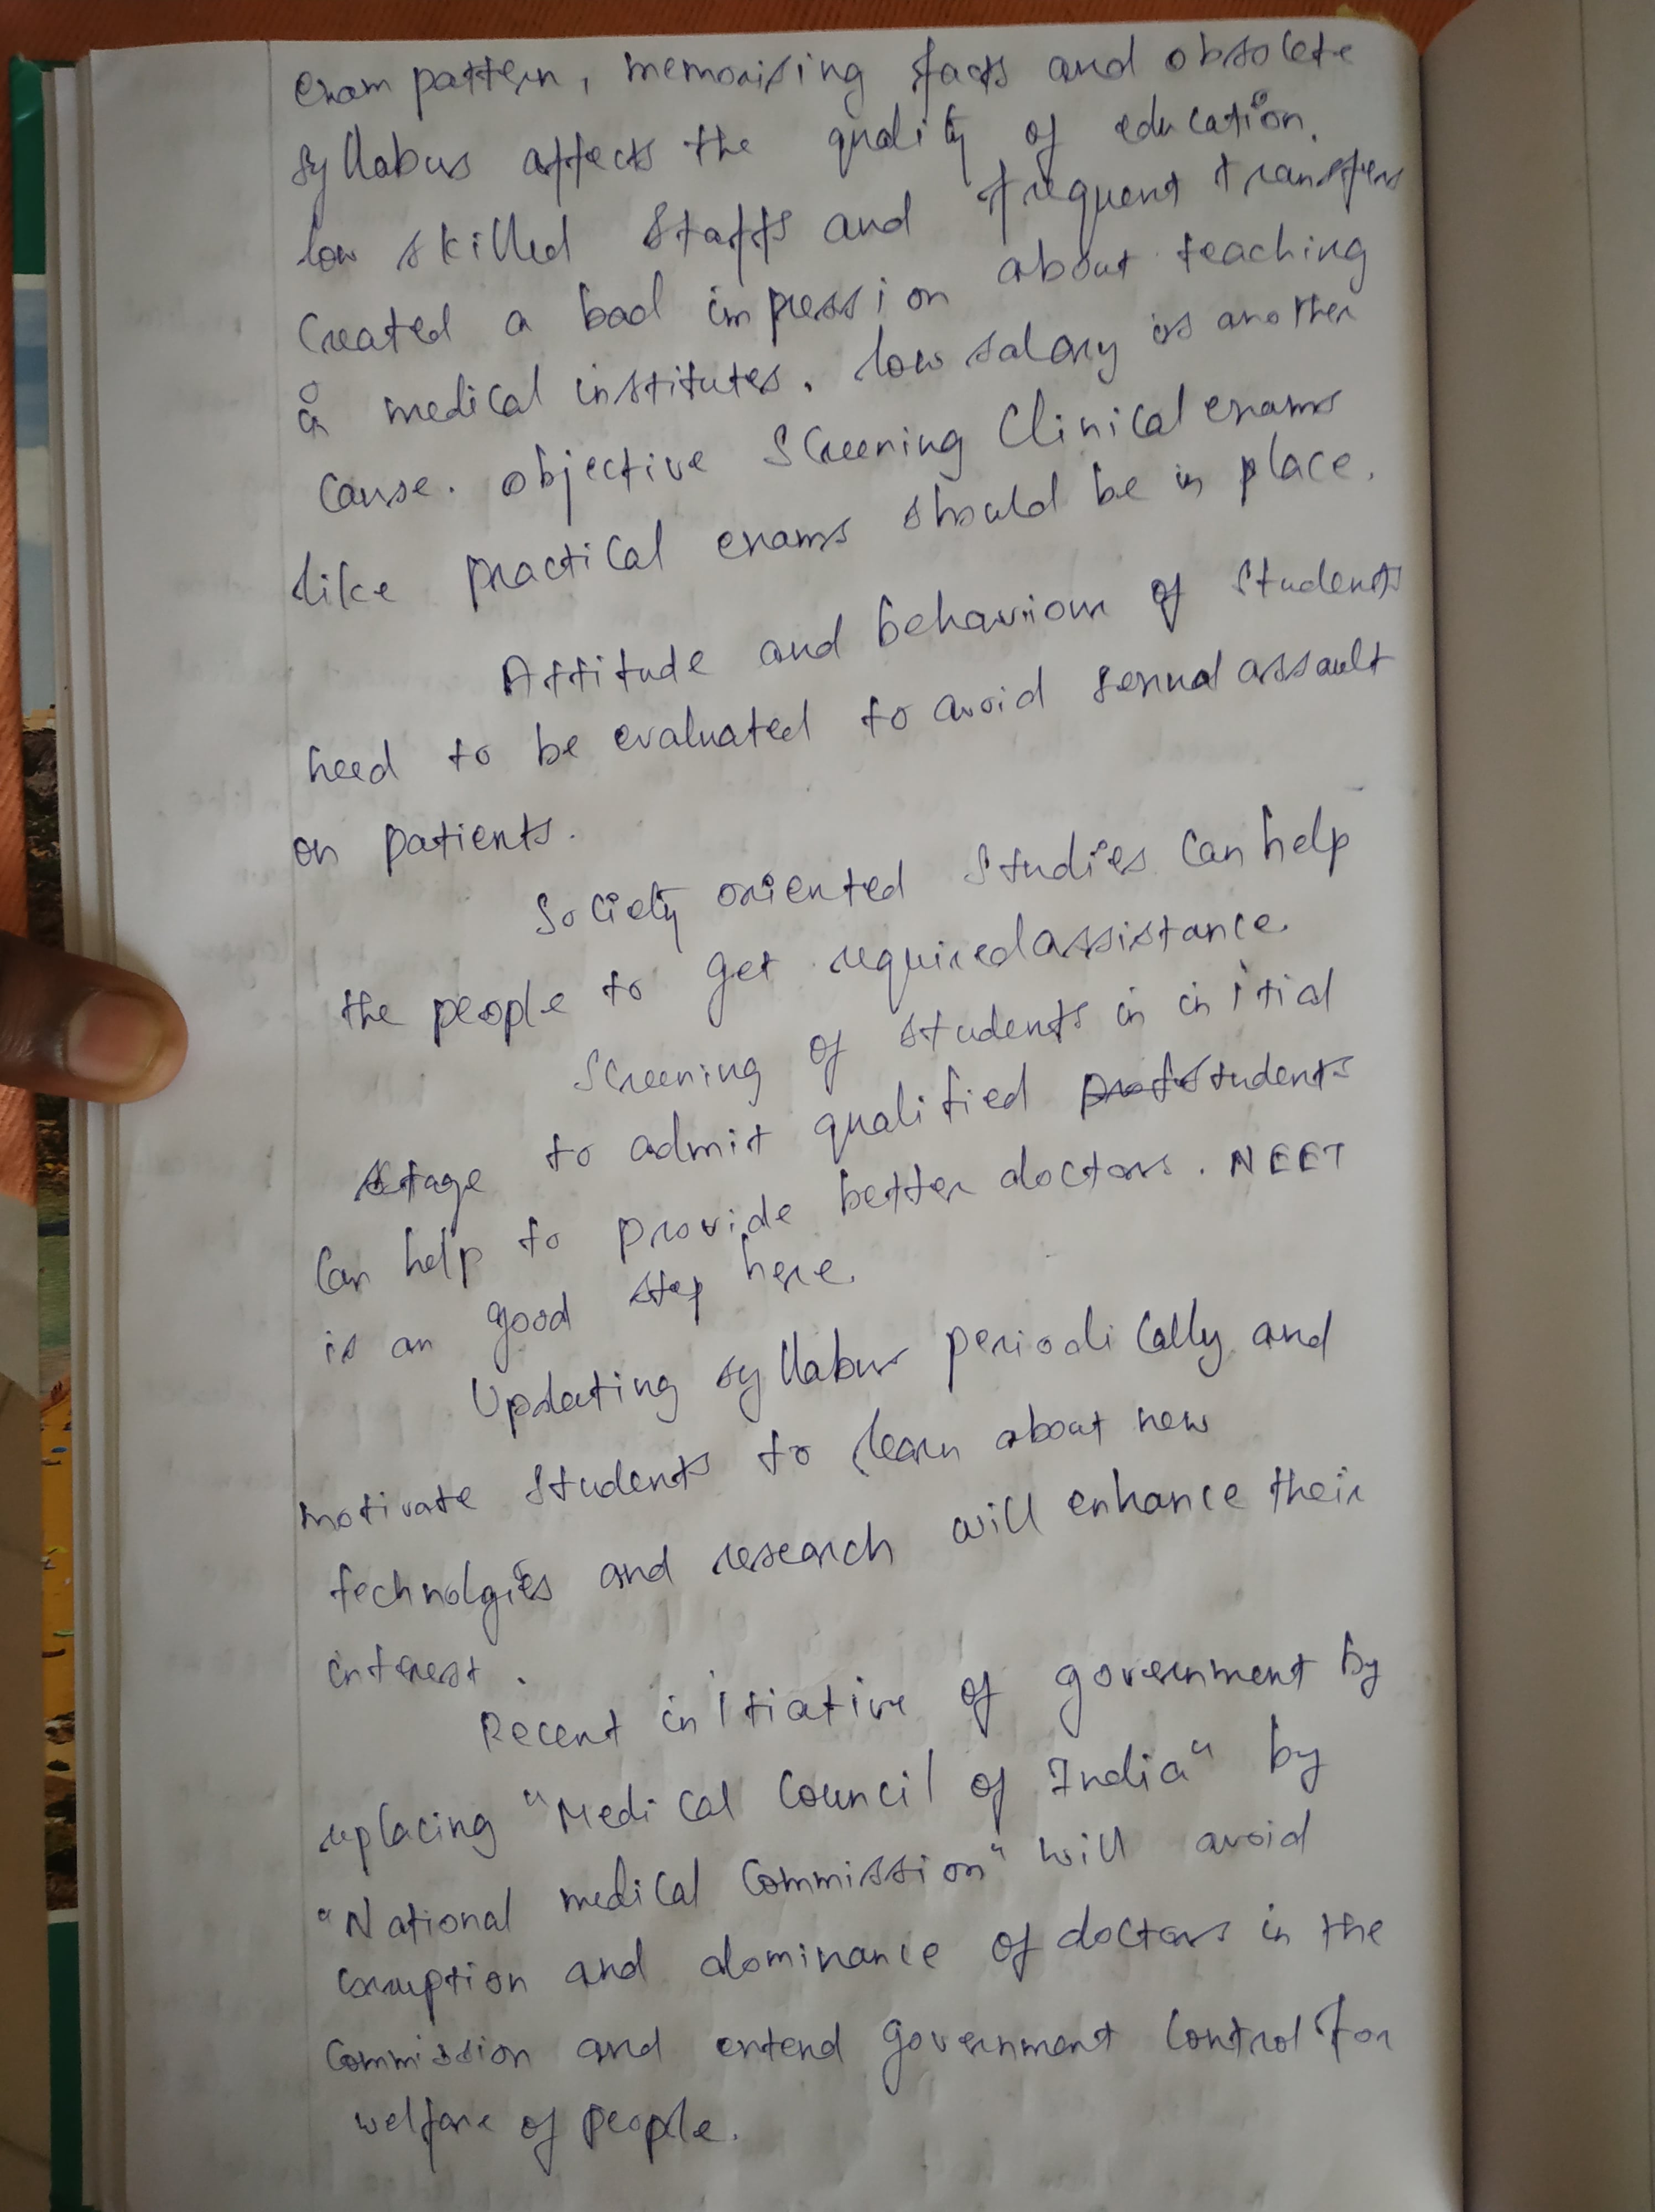 exam pattern, memorising facts and obsolete
syllabus affects the quality of education.
low skilled staffs and frequent transfers
created a bad impression about teaching
in medical institutes. low salary is another
cause. objective screening Clinical exams
like practical exams should be in place.
Attitude and behaviour of students
need to be evaluated to avoid sexual assault
on patients.
Society oriented studies can help
the people to get required assistance.
Screening of students in initial
stage to admit qualified students
can help to provide better doctors. NEET
is an good step here.
Updating syllabus periodically and
motivate students to learn about new
technolgies and research will enhance their
interest.
Recent initiative of government by
replacing "Medical Council of India" by
"National medical Commission" will avoid
corruption and dominance of doctors in the
commission and extend government control for
welfare of people.